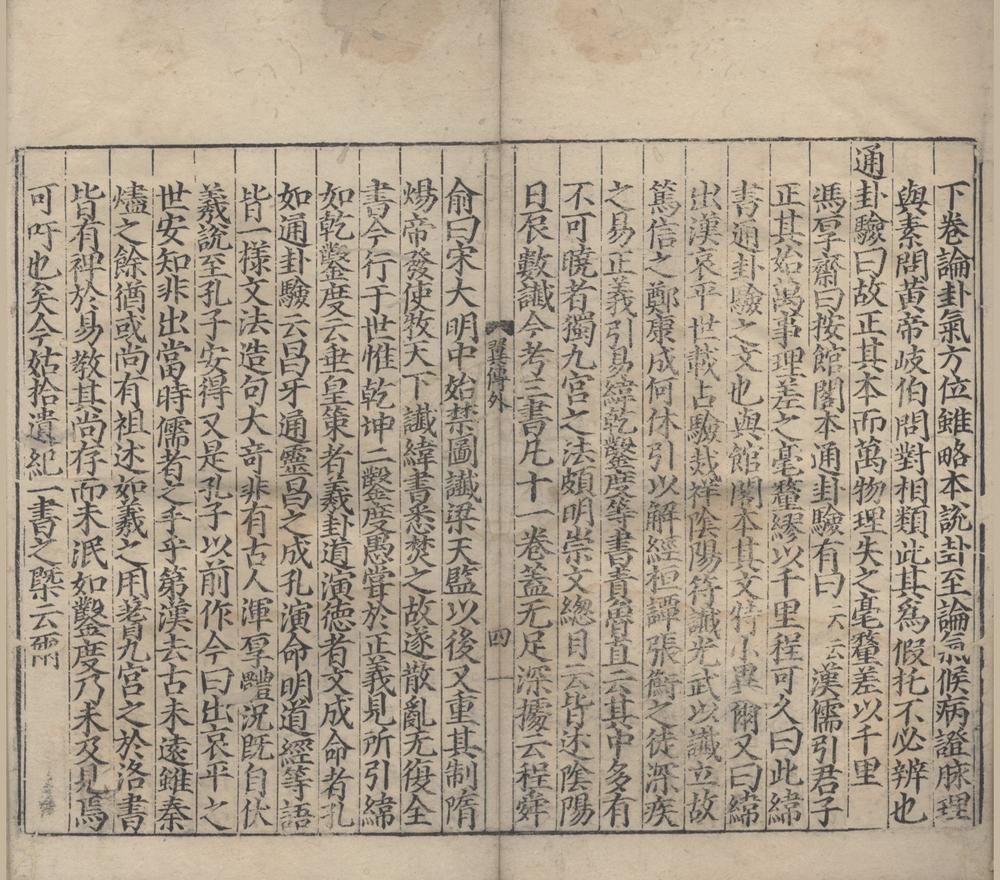 下卷論卦氣方位雖略本説卦至論氣候病證脉理
與素問黄帝岐伯問對相類此其爲假托不必辨也
通卦驗曰故正其本而萬物理失之毫釐差以千里
馮厚齋曰按館閣本通卦驗有曰一大云云漢儒引君子
正其始萬事理差之毫釐繆以千里程可久曰此緯
書通卦驗之文也與館閣本其文特小異爾又曰緯
出漢哀平世載占驗烖祥陰陽符讖光武以讖立故
篤信之鄭康成何休引以解經桓譚張衡之徒深疾
之易正義引易緯乾鑿度等書青魯直云其中多有
不可曉者獨九宮之法頗明崇文緫目云皆述隂陽
日辰數讖今考三書凡十一卷蓋无足深據云程舜
翼傳外
四
俞曰宋大明中始禁圖讖梁天監以後又重其制隋
煬帝發使牧天下讖緯書悉焚之故遂散亂无復全
書今行于世惟乾坤二鑿度愚嘗於正義見所引緯
如乾鑿度云垂皇策者羲卦道演德者文成命者孔
如通卦驗云昌牙通靈昌之成孔演命明道經等語
皆一樣文法造句大奇非有古人渾厚體況既自伏
羲説至孔子安得又是孔子以前作今曰出哀平之
世安知非出當時儒者之手乎第漢去古未遠雖秦
燼之餘猶或尚有祖述如羲之用蓍九宮之於洛書
皆有裨於易教其尚存而未泯如鑿度乃未及見焉
可吁也矣今姑拾遺紀一書之槩云爾